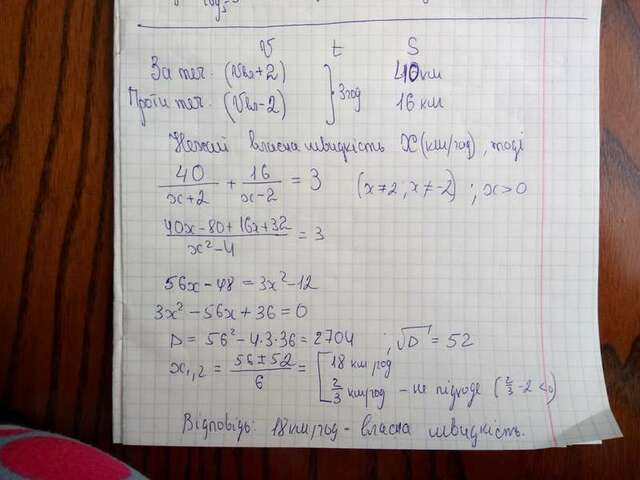 V t S
За теч. (Vвл+2) } 3год 40км
Проти теч. (Vвл-2) 16 км
Нехай власна швидкість X (км/год), тоді
40/(x+2) + 16/(x-2) = 3 (x≠2, x≠-2); x>0
(40x-80+16x+32)/(x²-4) = 3
56x-48 = 3x²-12
3x²-56x+36=0
D=56²-4·3·36=2704; √D=52
x₁,₂ = (56±52)/6 = [ 18 км/год
2/3 км/год - не підходе (2/3-2<0)
Відповідь: 18км/год - власна швидкість.